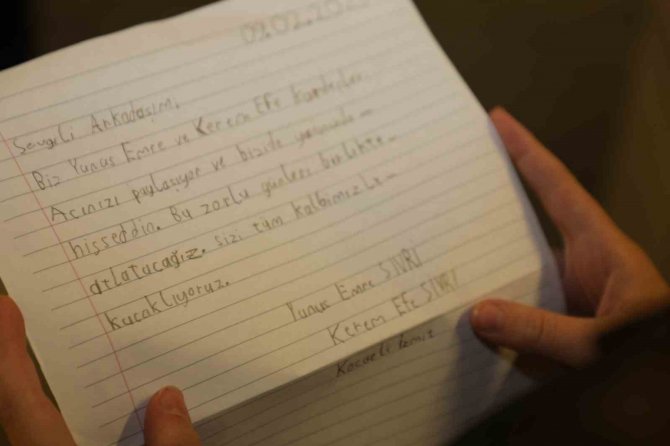 09.02.2023
Sevgili Arkadaşım,
Biz Yunus Emre ve Kerem Efe kardeşler.
Acınızı paylaşıyor ve bizide yanınızda-
hisseddin. Bu zorlu günleri birlikte-
atlatacağız. sizi tüm kalbimizle-
kucaklıyoruz.
Yunus Emre SİVRİ
Kerem Efe SİVRİ
Kocaeli İzmit